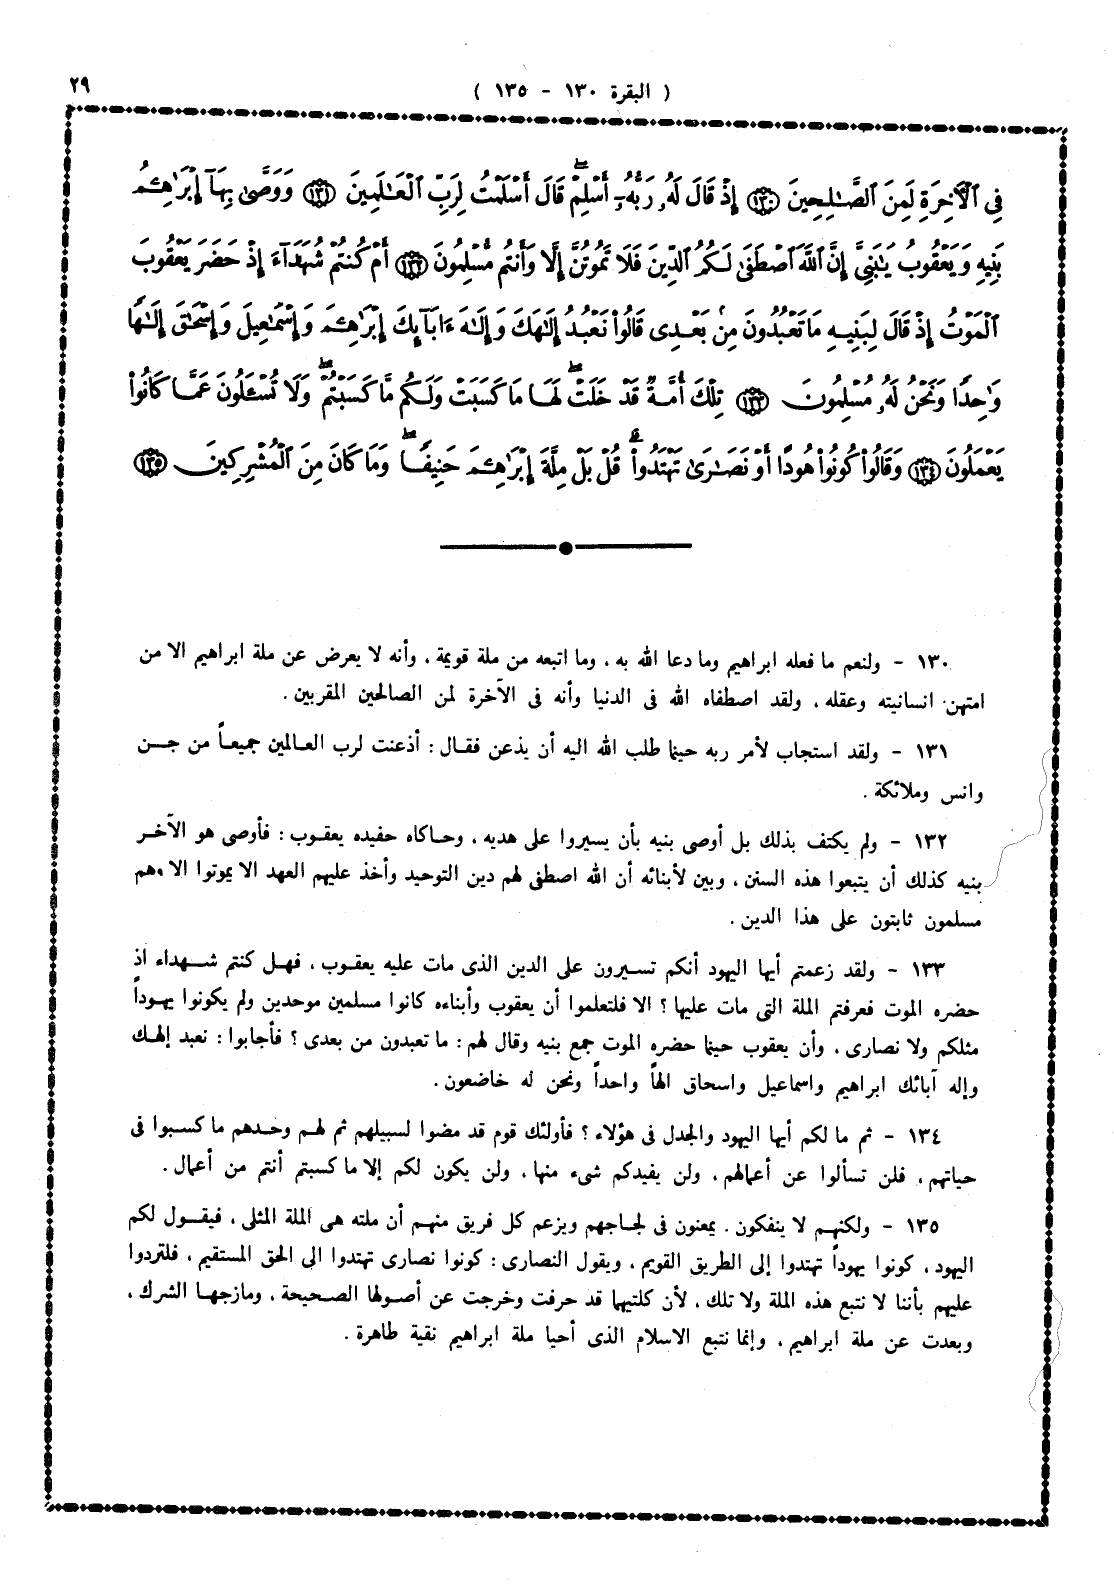 ٢٩
( البقرة ١٣٠ - ١٣٥ )
فِى ٱلْأَخِرَةِ لَمِنَ ٱلصَّـٰلِحِينَ ﴿١٣٠﴾ إِذْ قَالَ لَهُۥ رَبُّهُۥٓ أَسْلِمْ ۖ قَالَ أَسْلَمْتُ لِرَبِّ ٱلْعَـٰلَمِينَ ﴿١٣١﴾ وَوَصَّىٰ بِهَآ إِبْرَٰهِـۧمُ
بَنِيهِ وَيَعْقُوبُ يَـٰبَنِىَّ إِنَّ ٱللَّهَ ٱصْطَفَىٰ لَكُمُ ٱلدِّينَ فَلَا تَمُوتُنَّ إِلَّا وَأَنتُم مُّسْلِمُونَ ﴿١٣٢﴾ أَمْ كُنتُمْ شُهَدَآءَ إِذْ حَضَرَ يَعْقُوبَ
ٱلْمَوْتُ إِذْ قَالَ لِبَنِيهِ مَا تَعْبُدُونَ مِنۢ بَعْدِى قَالُوا۟ نَعْبُدُ إِلَـٰهَكَ وَإِلَـٰهَ ءَابَآئِكَ إِبْرَٰهِـۧمَ وَإِسْمَـٰعِيلَ وَإِسْحَـٰقَ إِلَـٰهًا
وَٰحِدًا وَنَحْنُ لَهُۥ مُسْلِمُونَ ﴿١٣٣﴾ تِلْكَ أُمَّةٌ قَدْ خَلَتْ ۖ لَهَا مَا كَسَبَتْ وَلَكُم مَّا كَسَبْتُمْ ۖ وَلَا تُسْـَٔلُونَ عَمَّا كَانُوا۟
يَعْمَلُونَ ﴿١٣٤﴾ وَقَالُوا۟ كُونُوا۟ هُودًا أَوْ نَصَـٰرَىٰ تَهْتَدُوا۟ ۗ قُلْ بَلْ مِلَّةَ إِبْرَٰهِـۧمَ حَنِيفًا ۖ وَمَا كَانَ مِنَ ٱلْمُشْرِكِينَ ﴿١٣٥﴾
١٣٠ - ولنعم ما فعله ابراهيم وما دعا الله به ، وما اتبعه من ملة قويمة ، وأنه لا يعرض عن ملة ابراهيم الا من
امتهن انسانيته وعقله ، ولقد اصطفاه الله فى الدنيا وأنه فى الآخرة لمن الصالحين المقربين .
١٣١ - ولقد استجاب لأمر ربه حينما طلب الله اليه أن يذعن فقال : أذعنت لرب العالمين جميعاً من جن
وانس وملائكة .
١٣٢ - ولم يكتف بذلك بل أوصى بنيه بأن يسيروا على هديه ، وحاكاه حفيده يعقوب : فأوصى هو الآخر
بنيه كذلك أن يتبعوا هذه السنن ، وبين لأبنائه أن الله اصطفى لهم دين التوحيد وأخذ عليهم العهد الا يموتوا الا وهم
مسلمون ثابتون على هذا الدين .
١٣٣ - ولقد زعمتم أيها اليهود أنكم تسيرون على الدين الذى مات عليه يعقوب ، فهل كنتم شهداء اذ
حضره الموت فعرفتم الملة التى مات عليها ؟ الا فلتعلموا أن يعقوب وأبناءه كانوا مسلمين موحدين ولم يكونوا يهوداً
مثلكم ولا نصارى ، وأن يعقوب حينما حضره الموت جمع بنيه وقال لهم : ما تعبدون من بعدى ؟ فأجابوا : نعبد إلهك
وإله آبائك ابراهيم واسماعيل واسحاق الهاً واحداً ونحن له خاضعون .
١٣٤ - ثم ما لكم أيها اليهود والجدل فى هؤلاء ؟ فأولئك قوم قد مضوا لسبيلهم ثم لهم وحدهم ما كسبوا فى
حياتهم ، فلن تسألوا عن أعمالهم ، ولن يفيدكم شىء منها ، ولن يكون لكم إلا ما كسبتم أنتم من أعمال .
١٣٥ - ولكنهم لا ينفكون . يمعنون فى لجاجهم ويزعم كل فريق منهم أن ملته هى الملة المثلى ، فيقول لكم
اليهود ، كونوا يهوداً تهتدوا إلى الطريق القويم ، ويقول النصارى : كونوا نصارى تهتدوا الى الحق المستقيم ، فلتردوا
عليهم بأننا لا نتبع هذه الملة ولا تلك ، لأن كلتيهما قد حرفت وخرجت عن أصولها الصحيحة ، ومازجها الشرك ،
وبعدت عن ملة ابراهيم ، وإنما نتبع الاسلام الذى أحيا ملة ابراهيم نقية طاهرة .